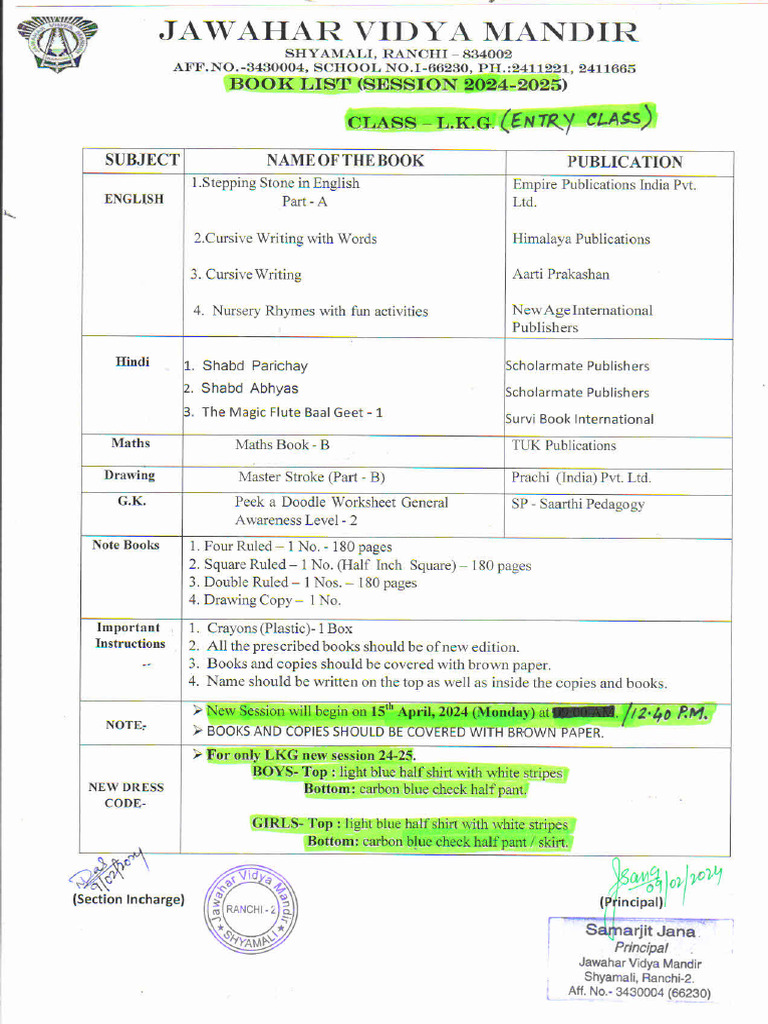 JAWAHAR VIDYA MANDIR
SHYAMALI, RANCHI – 834002
AFF.NO.-3430004, SCHOOL NO.I-66230, PH.:2411221, 2411665
BOOK LIST (SESSION 2024-2025)
CLASS – L.K.G. (ENTRY CLASS)
SUBJECT NAME OF THE BOOK PUBLICATION
ENGLISH
1.Stepping Stone in English Empire Publications India Pvt.
Part - A Ltd.
2.Cursive Writing with Words Himalaya Publications
3. Cursive Writing Aarti Prakashan
4. Nursery Rhymes with fun activities New Age International
Publishers
Hindi
1. Shabd Parichay Scholarmate Publishers
2. Shabd Abhyas Scholarmate Publishers
3. The Magic Flute Baal Geet - 1 Survi Book International
Maths Maths Book - B TUK Publications
Drawing Master Stroke (Part - B) Prachi (India) Pvt. Ltd.
G.K. Peek a Doodle Worksheet General SP - Saarthi Pedagogy
Awareness Level - 2
Note Books 1. Four Ruled – 1 No. - 180 pages
2. Square Ruled – 1 No. (Half Inch Square) – 180 pages
3. Double Ruled – 1 Nos. – 180 pages
4. Drawing Copy – 1 No.
Important Instructions
1. Crayons (Plastic)- 1 Box
2. All the prescribed books should be of new edition.
3. Books and copies should be covered with brown paper.
4. Name should be written on the top as well as inside the copies and books.
NOTE:-
➢ New Session will begin on 15th April, 2024 (Monday) at /12.40 P.M.
➢ BOOKS AND COPIES SHOULD BE COVERED WITH BROWN PAPER.
NEW DRESS CODE-
➢ For only LKG new session 24-25.
BOYS- Top : light blue half shirt with white stripes
Bottom: carbon blue check half pant.
GIRLS- Top : light blue half shirt with white stripes
Bottom: carbon blue check half pant / skirt.
Das
9/02/2024
(Section Incharge)
Jawahar Vidya Mandir
RANCHI - 2
★ SHYAMALI ★
09/02/2024
(Principal)
Samarjit Jana
Principal
Jawahar Vidya Mandir
Shyamali, Ranchi-2.
Aff. No.- 3430004 (66230)